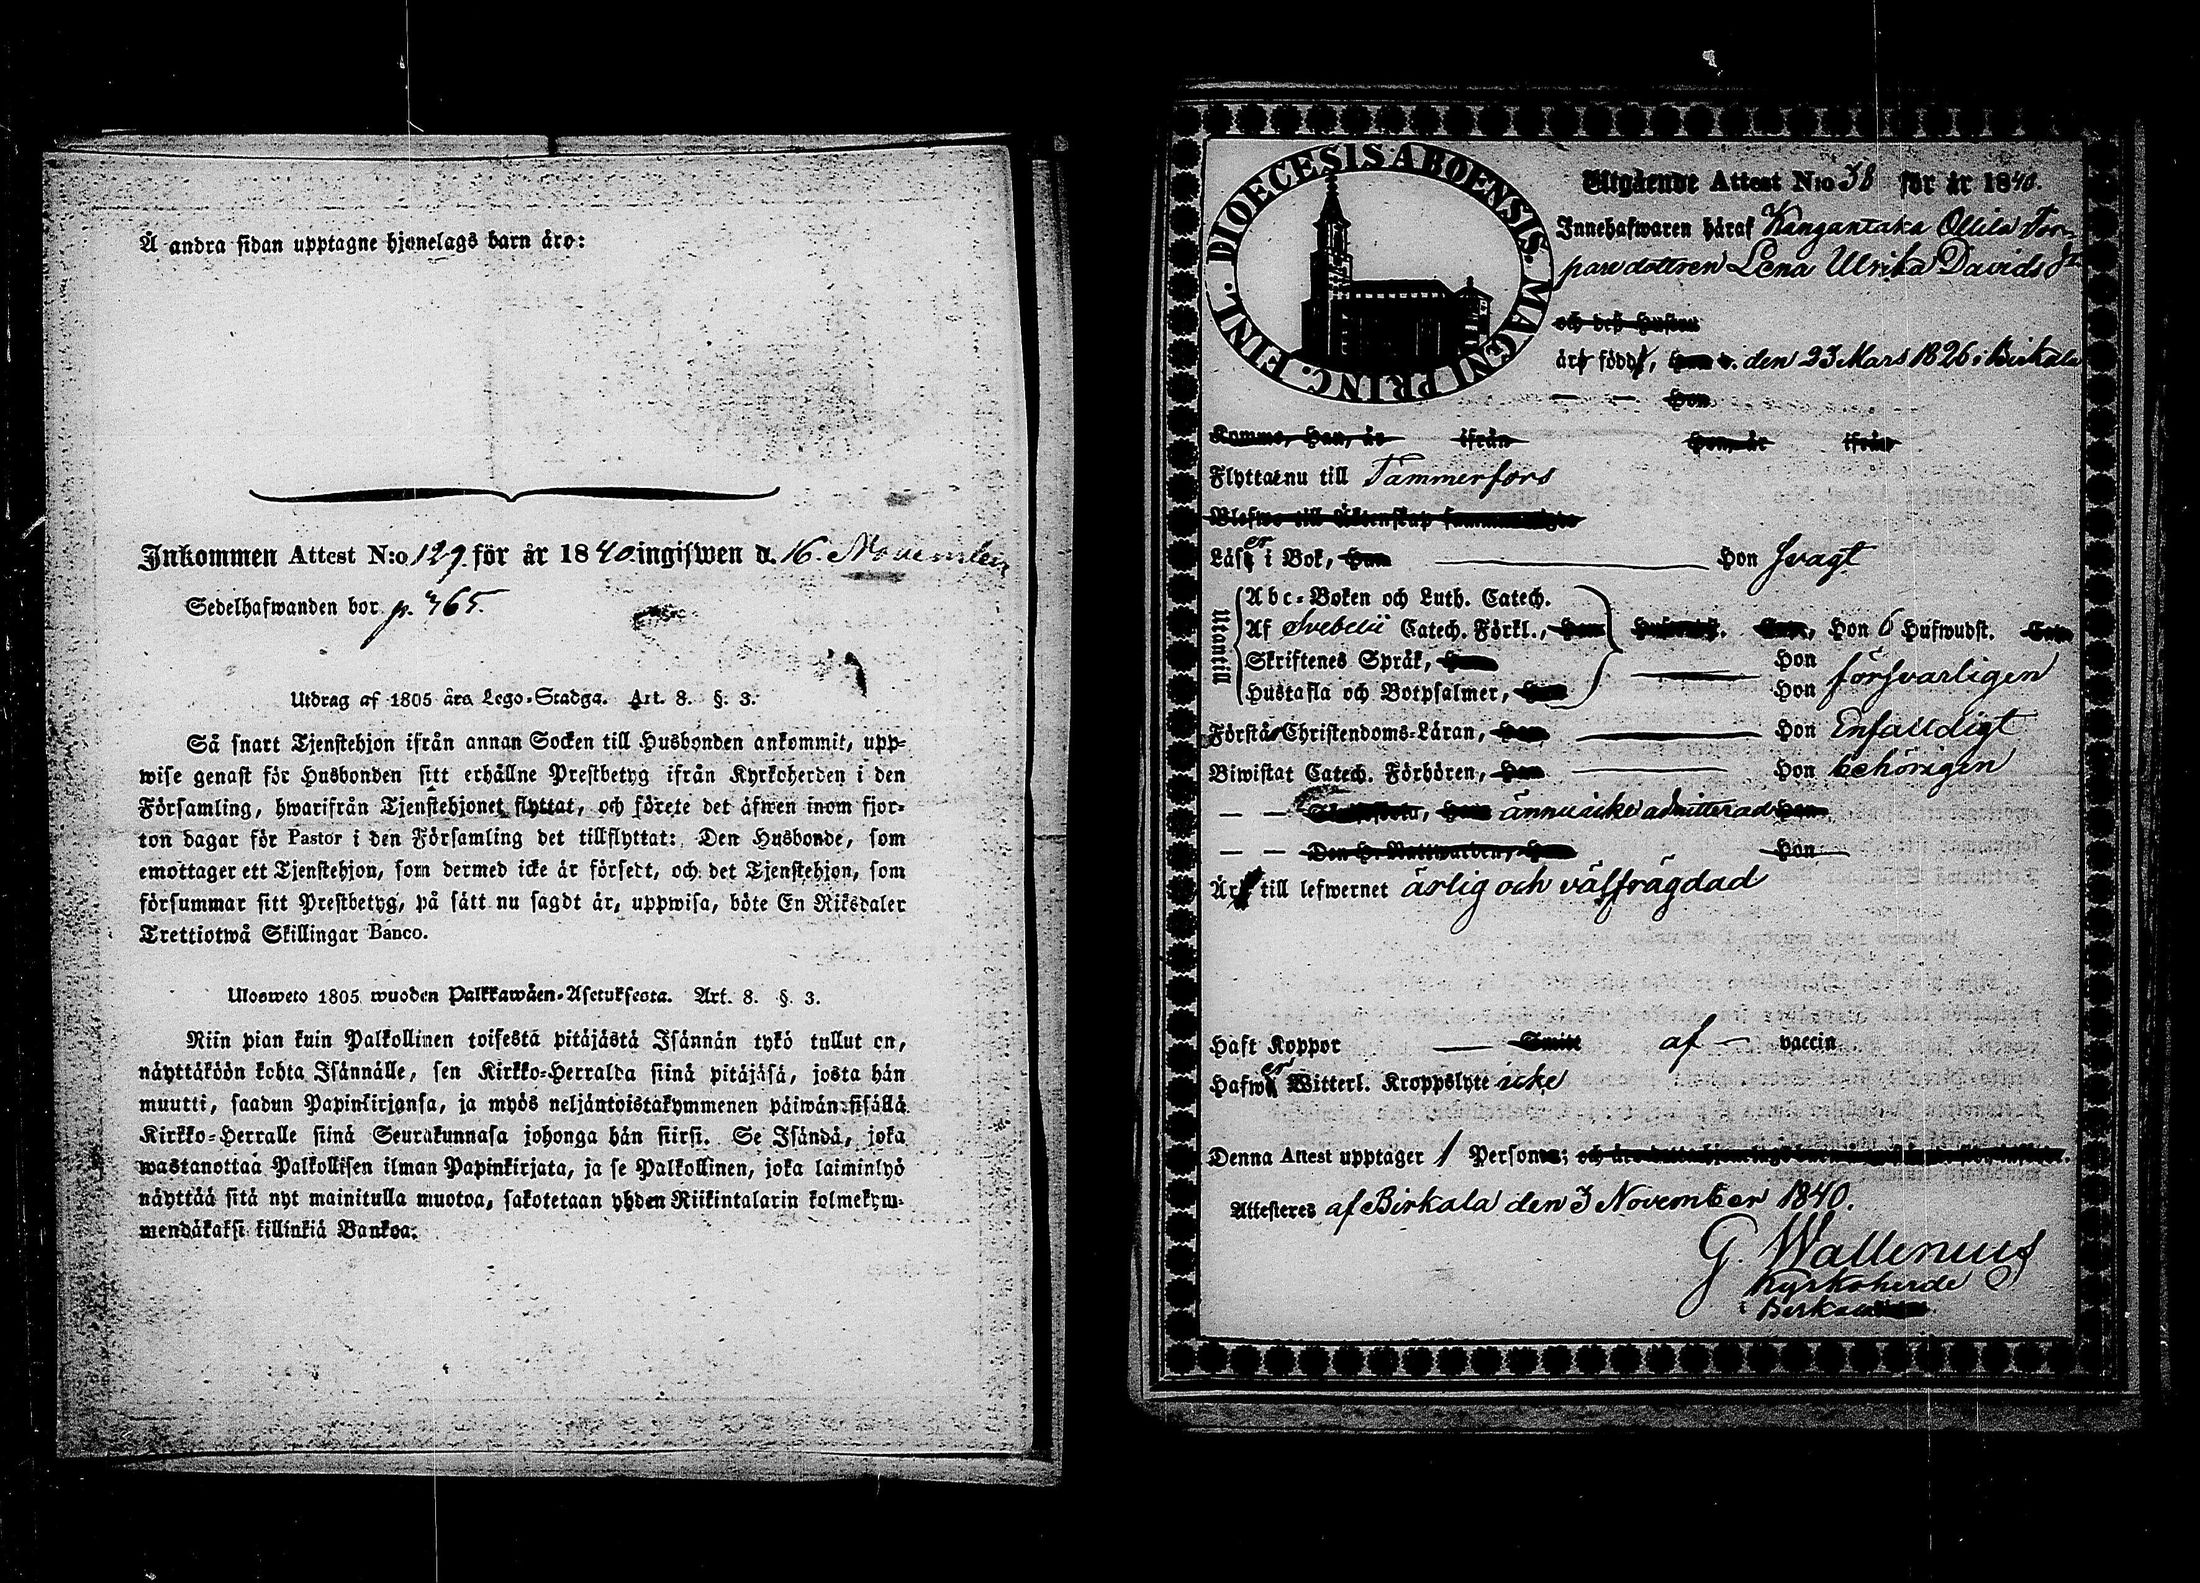 Å andra sidan upptagne hjonelags barn äro:
Inkommen Attest N:o 129 för år 1840 ingifwen d. 16. November
Sedelhafwanden bor p. 365.
Utdrag af 1805 års Lego-Stadga. Art. 8. §. 3.
Så snart Tjenstehjon ifrån annan Socken till Husbonden ankommit, upp-
wise genast för Husbonden sitt erhållne Prestbetyg ifrån Kyrkoherden i den
Församling, hwarifrån Tjenstehjonet flyttat, och förete det äfwen inom fjor-
ton dagar för Pastor i den Församling det tillflyttat: Den Husbonde, som
emottager ett Tjenstehjon, som dermed icke är försedt, och det Tjenstehjon, som
försummar sitt Prestbetyg, på sätt nu sagdt är, uppwisa, böte En Riksdaler
Trettiotwå Skillingar Banco.
Ulosweto 1805 wuoden Palkkawäen-Asetuksesta. Art. 8. §. 3.
Niin pian kuin Palkollinen toisesta pitäjästä Isännän tykö tullut on,
näyttäköön kohta Isännälle, sen Kirkko-Herralda siinä pitäjäsä, josta hän
muutti, saadun Papinkirjansa, ja myös neljäntoistakymmenen päiwän sisällä
Kirkko-Herralle siinä Seurakunnasa johonga hän siirsi. Se Isändä, joka
wastanottaa Palkollisen ilman Papinkirjata, ja se Palkollinen, joka laiminlyö
näyttää sitä nyt mainitulla muotoa, sakotetaan yhden Riikintalarin kolmekym-
mendäkaksi killinkiä Bankoa.
DIOECESIS ABOENSIS. MAGNI PRINC. FINL.
Utgående Attest N:o 38 för år 1840.
Innehafwaren häraf Kangantaka Ollila Tor-
paredottren Lena Ulrika Davids Dr
och deß Hustru
äro född, Han d. den 23 Mars 1826 i Birkala
— — Hon
Komme, Han, år ifrån Hon, år ifrån
Flyttar nu till Tammerfors
Blefwo till Äktenskap sammanwigde
Läser i Bok, Han Hon svagt
Utantill
Abc-Boken och Luth. Catech.
Af Svebelii Catech. Förkl., Han Hufwudst. Cap., Hon 6 Hufwudst. Cap.
Skriftenes Språk, Han Hon
Hustafla och Botpsalmer, Han Hon försvarligen
Förstår Christendoms-Läran, Han Hon Enfaldigt
Biwistat Catech. Förhören, Han Hon behörigen
— — Han ännu icke admitterad Hon
— — Den H. Nattwarden, Han Hon
Är till lefwernet ärlig och välfrägdad
Haft Koppor — Smitt af — vaccin
Hafwer Witterl. Kroppslyte icke
Denna Attest upptager 1 Person;
Attesteres af Birkala den 3 November 1840.
G. Wallenius
Kyrkoherde
i Birkala